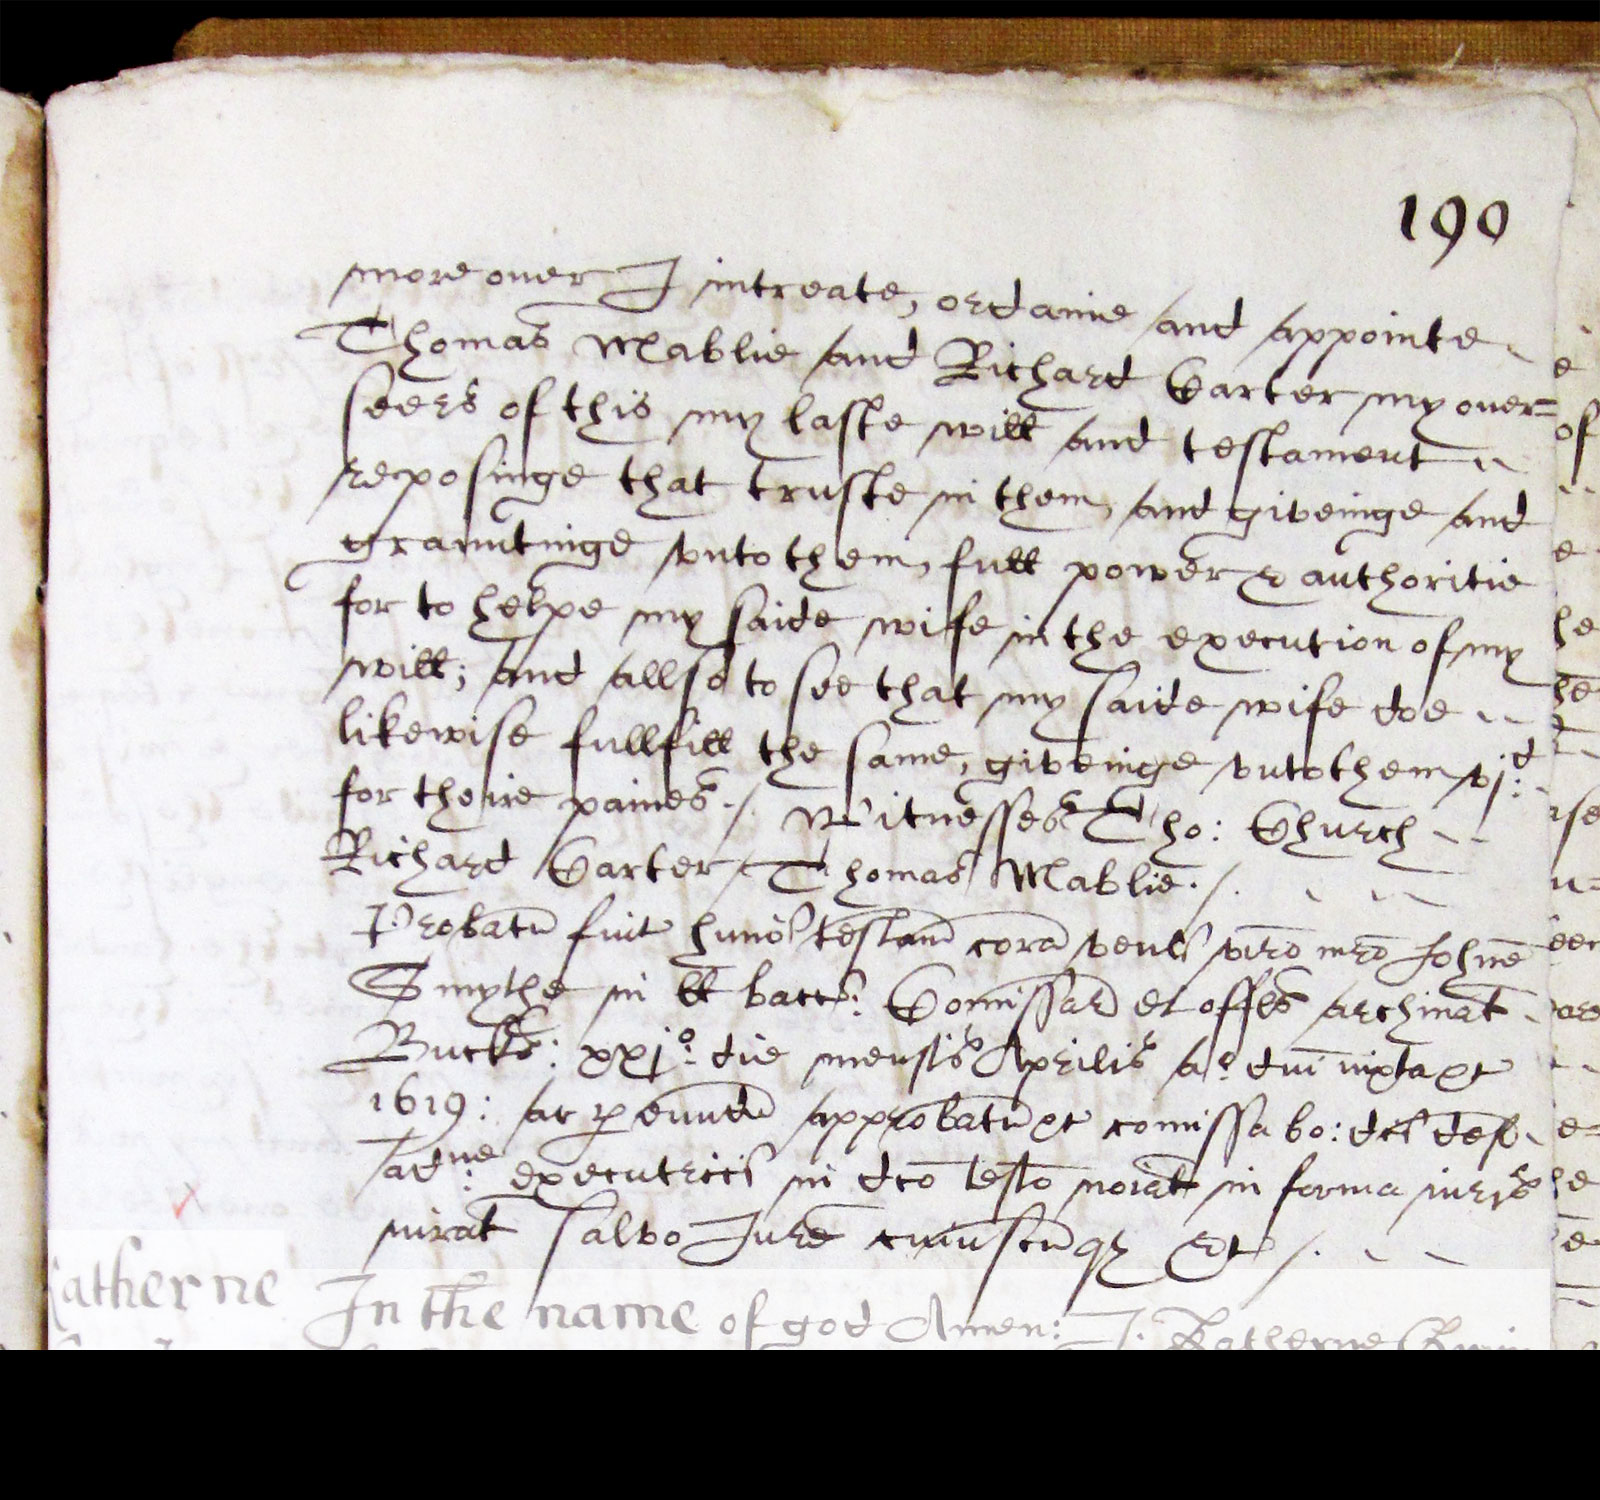 190
more over I intreate, ordaine and appointe
Thomas Mablie and Richard Carter my over=
seers of this my laste will and testament
reposinge that truste in them, and giveinge and
grauntinge unto them, full power & authoritie
for to helpe my saide wife in the execution of my
will; and allso to see that my saide wife doe
likewise fullfill the same, giveinge unto them vjd:
for theire paines./ Witnesses Tho: Church
Richard Carter Thomas Mablie./.
Probatu fuit huiōi testam cora venli viro mro Johne
Smythe in ll bacc: Comissar et offli archinat
Bucks: xxjo: die mensis Aprilis ao dni iuxta &c
1619: ac p eundu approbatu &c comissa bo: dci def
adne: executrici in dco testo noiat in forma iuris
iurat salvo Jure cuiuscuq &c /.
Catherne
In the name of god Amen: I. Katherne